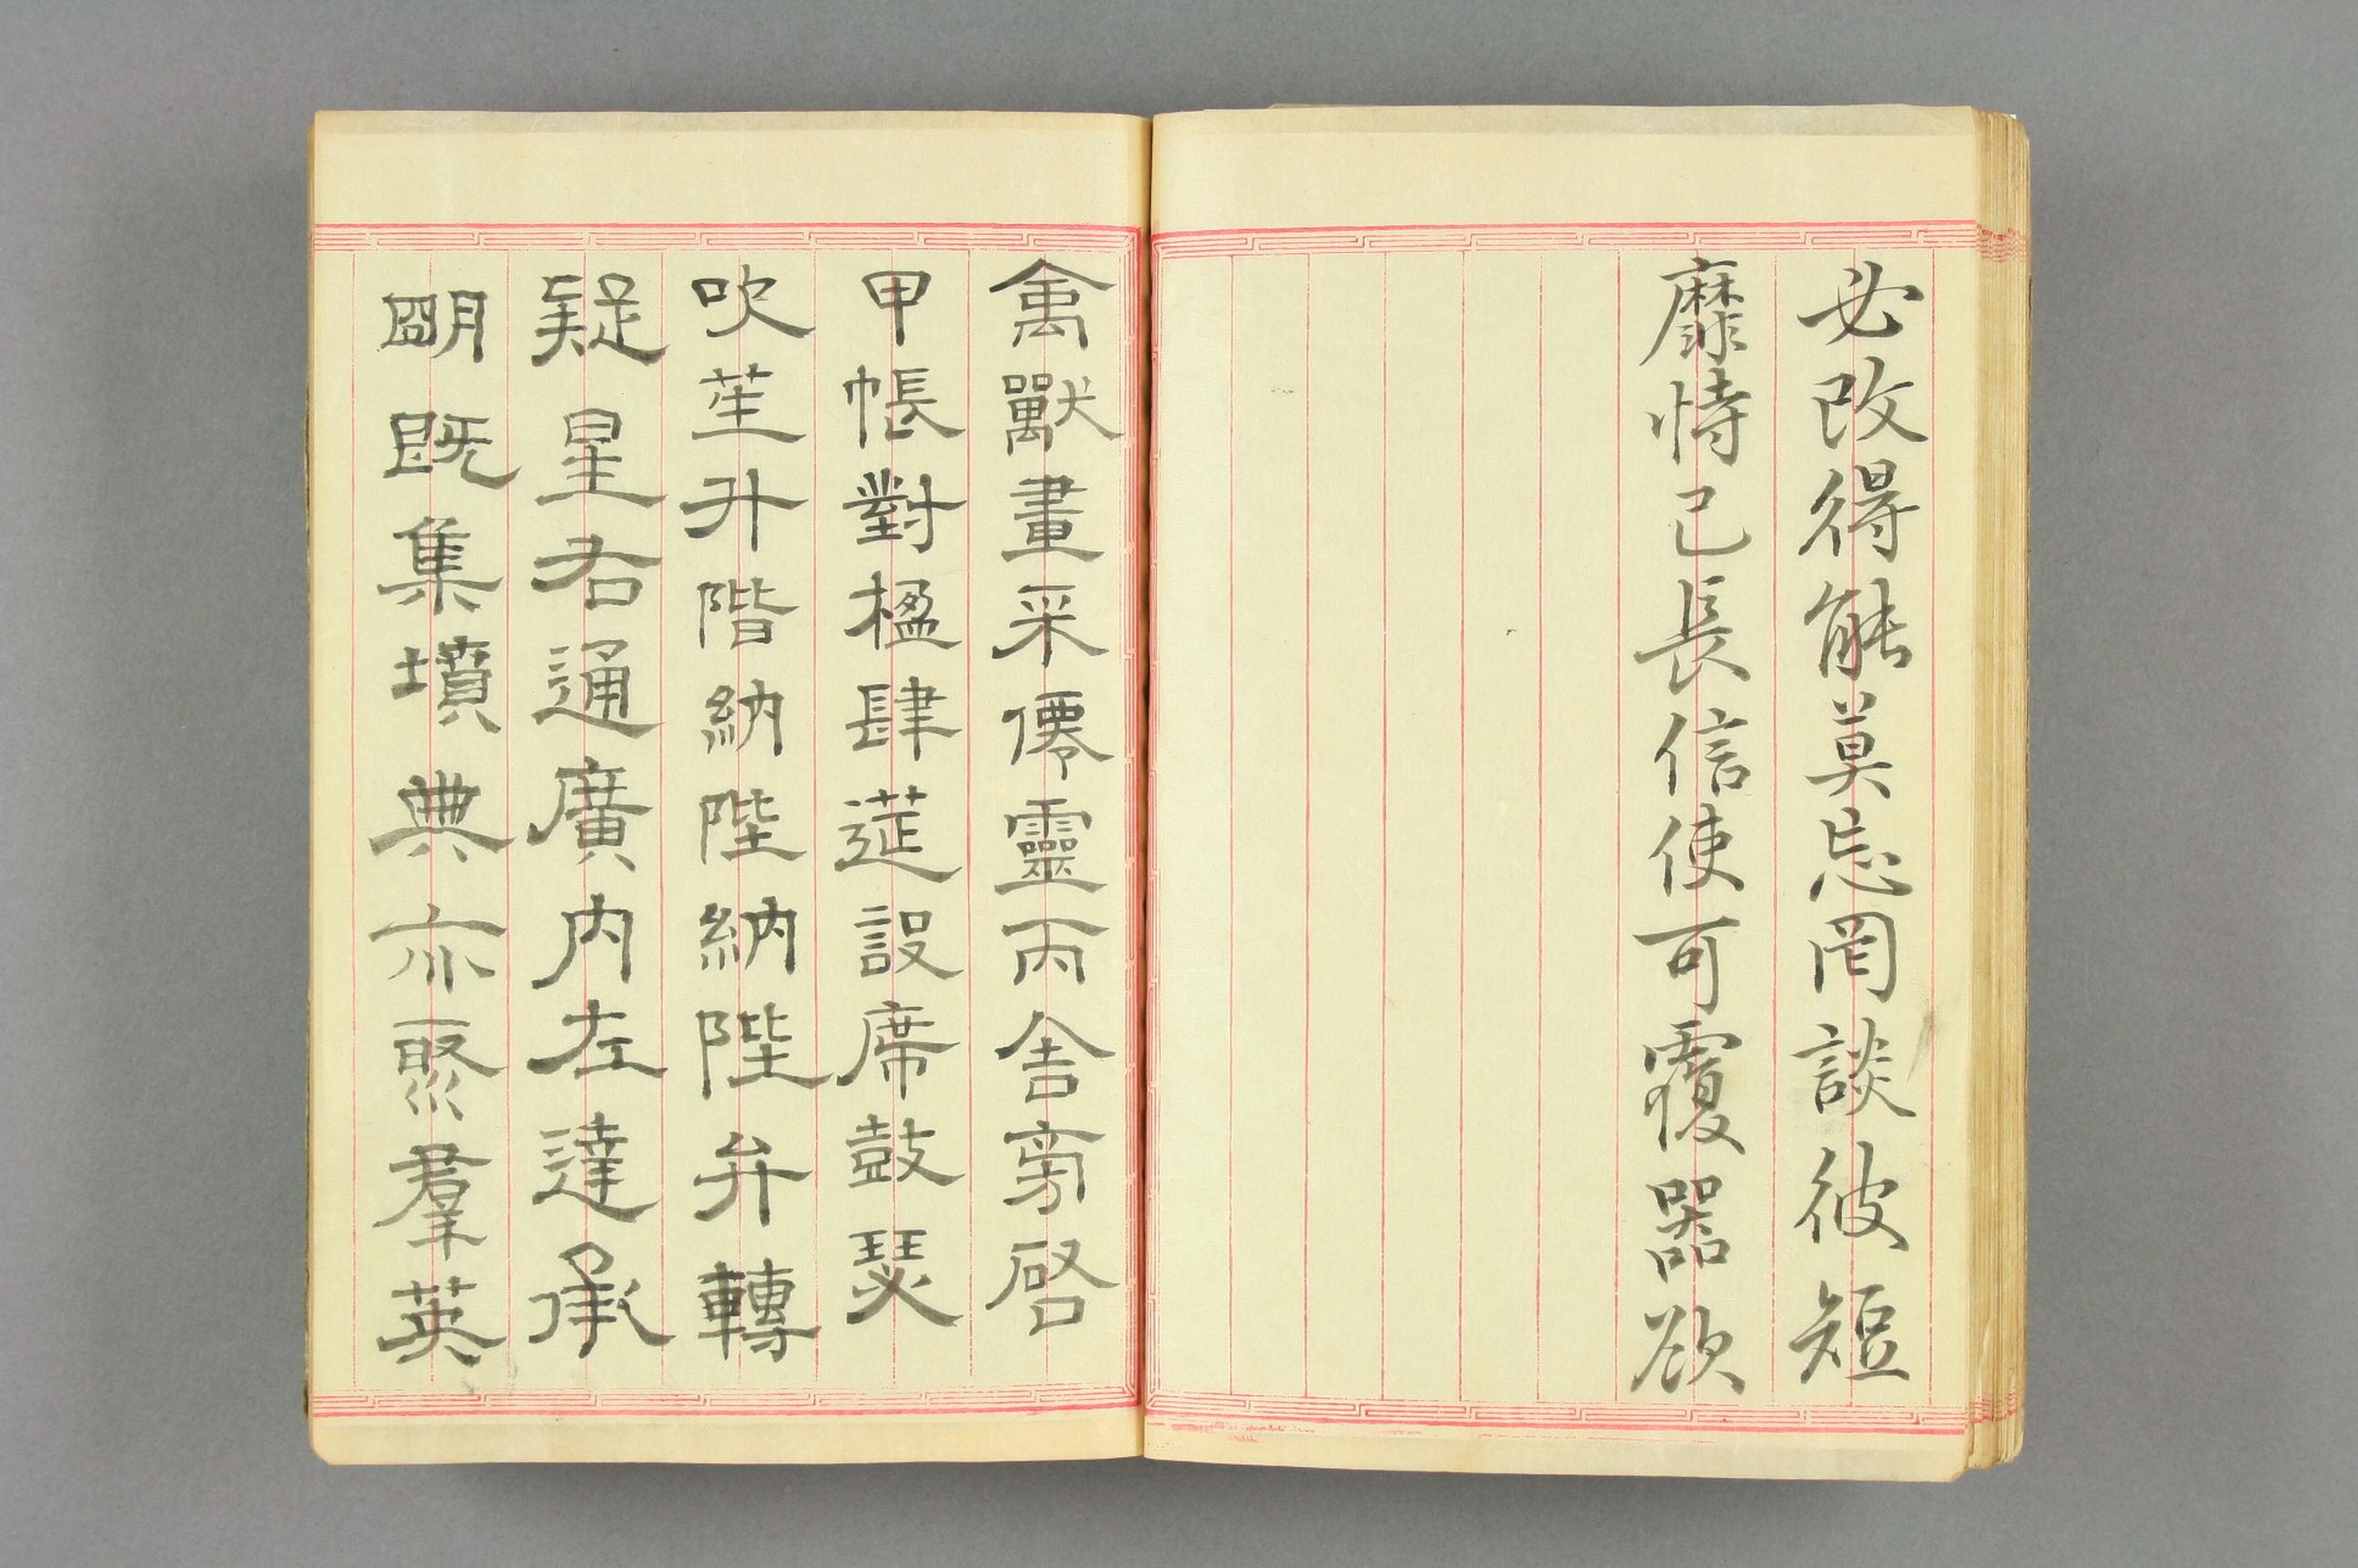 必改得能莫忘罔談彼短
靡恃己長信使可覆器欲
禽獸畫采僊靈丙舍旁啓
甲帳對楹肆筵設席鼓瑟
吹笙升階納陛納陛弁轉
疑星右通廣內左達承
明既集墳典亦聚羣英